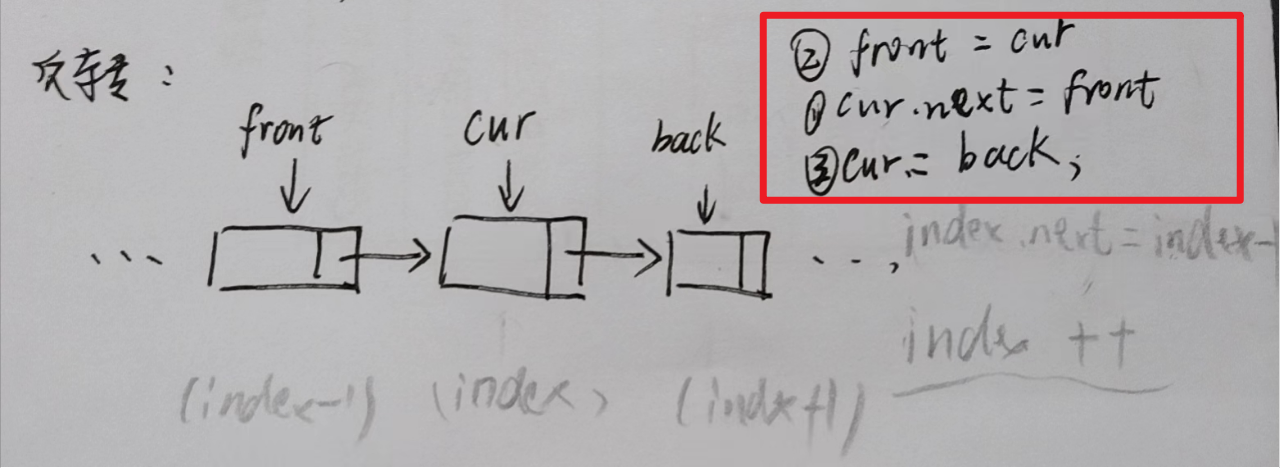 反转：
② front = cur
① cur.next = front
③ cur = back;
front
cur
back
...
...,
index.next = index-
index ++
(index-1)
(index)
(index+1)